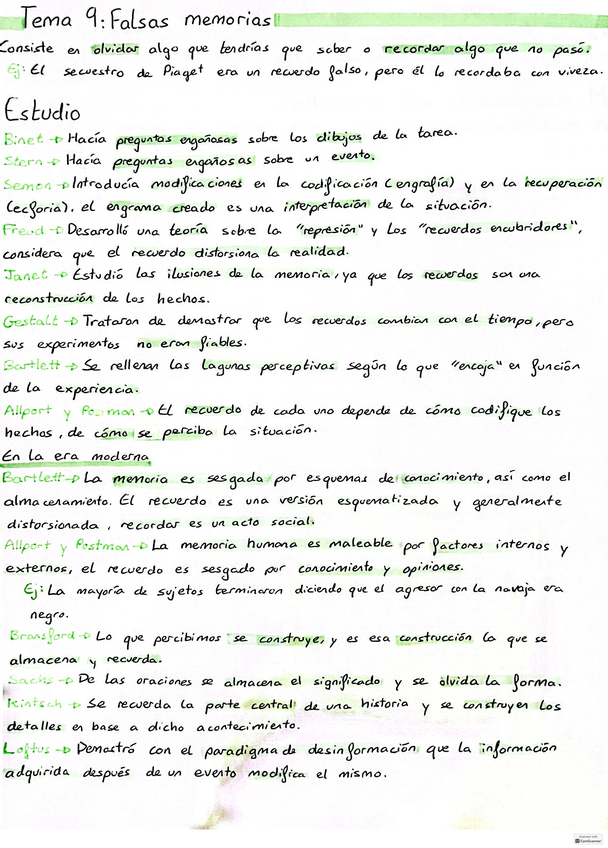 Tema 9: Falsas memorias
Consiste en olvidar algo que tendrías que saber o recordar algo que no pasó.
Ej: El secuestro de Piaget era un recuerdo falso, pero él lo recordaba con viveza.
Estudio
Binet → Hacía preguntas engañosas sobre los dibujos de la tarea.
Stern → Hacía preguntas engañosas sobre un evento.
Semon → Introducía modificaciones en la codificación (engrafía) y en la recuperación
(ecforia), el engrama creado es una interpretación de la situación.
Freud → Desarrolló una teoría sobre la "represión" y los "recuerdos encubridores",
considera que el recuerdo distorsiona la realidad.
Janet → Estudió las ilusiones de la memoria, ya que los recuerdos son una
reconstrucción de los hechos.
Gestalt → Trataron de demostrar que los recuerdos cambian con el tiempo, pero
sus experimentos no eran fiables.
Bartlett → Se rellenan las lagunas perceptivas según lo que "encaja" en función
de la experiencia.
Allport y Posman → El recuerdo de cada uno depende de cómo codifique los
hechos, de cómo se perciba la situación.
En la era moderna
Bartlett → La memoria es sesgada por esquemas de conocimiento, así como el
almacenamiento. El recuerdo es una versión esquematizada y generalmente
distorsionada, recordar es un acto social.
Allport y Postman → La memoria humana es maleable por factores internos y
externos, el recuerdo es sesgado por conocimiento y opiniones.
Ej: La mayoría de sujetos terminaron diciendo que el agresor con la navaja era
negro.
Bransford → Lo que percibimos se construye, y es esa construcción la que se
almacena y recuerda.
Sachs → De las oraciones se almacena el significado y se olvida la forma.
Kintsch → Se recuerda la parte central de una historia y se construyen los
detalles en base a dicho acontecimiento.
Loftus → Demostró con el paradigma de desinformación que la información
adquirida después de un evento modifica el mismo.
Scanned with
CamScanner